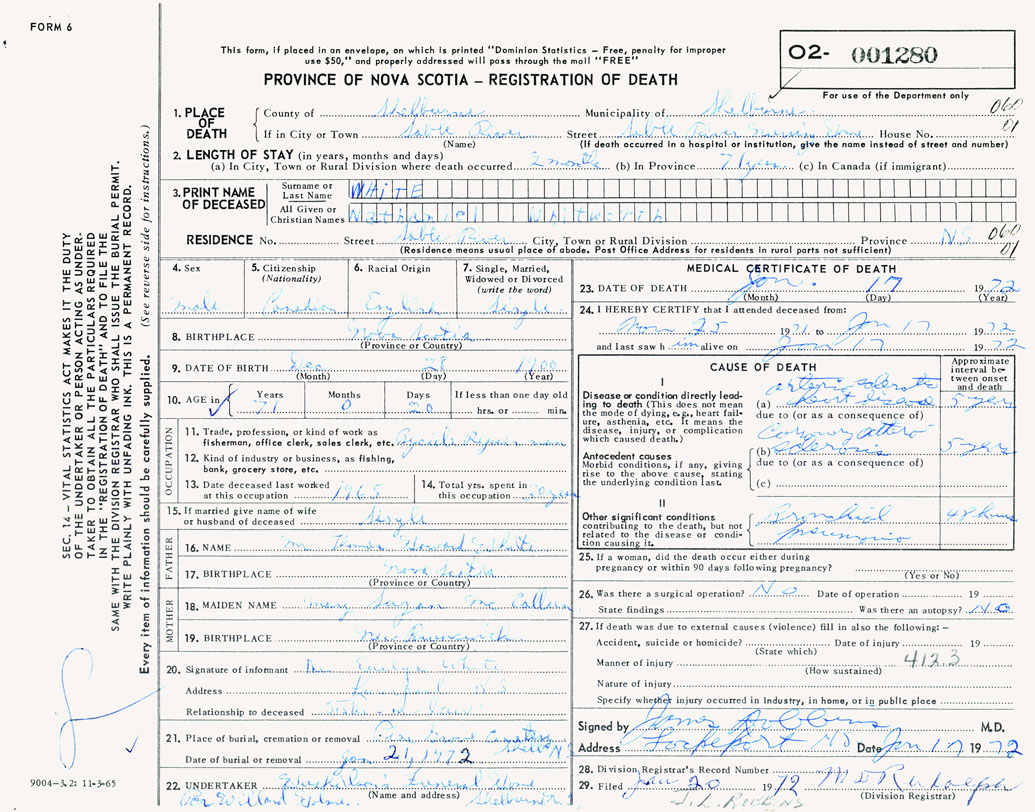 FORM 6
This form, if placed in an envelope, on which is printed "Dominion Statistics — Free, penalty for improper
use $50," and properly addressed will pass through the mail "FREE"
PROVINCE OF NOVA SCOTIA – REGISTRATION OF DEATH
O2- 001280
For use of the Department only
1. PLACE OF DEATH
County of Shelburne Municipality of Shelburne 060
If in City or Town Sable River Street Sable River House No. 01
(Name) (If death occurred in a hospital or institution, give the name instead of street and number)
2. LENGTH OF STAY (in years, months and days)
(a) In City, Town or Rural Division where death occurred 2 month (b) In Province 71 years (c) In Canada (if immigrant)
3. PRINT NAME OF DECEASED
Surname or Last Name WHITE
All Given or Christian Names Nathaniel Whitworth
RESIDENCE No. Street Sable River City, Town or Rural Division Province N.S. 060
(Residence means usual place of abode. Post Office Address for residents in rural parts not sufficient) 01
4. Sex male
5. Citizenship (Nationality) Canadian
6. Racial Origin English
7. Single, Married, Widowed or Divorced (write the word) Single
8. BIRTHPLACE Nova Scotia
(Province or Country)
9. DATE OF BIRTH Dec 28 1900
(Month) (Day) (Year)
10. AGE in Years Months Days If less than one day old
71 0 20 hrs. or min.
OCCUPATION
11. Trade, profession, or kind of work as
fisherman, office clerk, sales clerk, etc. Repair man
12. Kind of industry or business, as fishing,
bank, grocery store, etc.
13. Date deceased last worked
at this occupation 1965
14. Total yrs. spent in
this occupation 50 years
15. If married give name of wife
or husband of deceased Single
FATHER
16. NAME Mr. Thomas Howard White
17. BIRTHPLACE Nova Scotia
(Province or Country)
MOTHER
18. MAIDEN NAME Mary Suzan
19. BIRTHPLACE New Brunswick
(Province or Country)
20. Signature of informant Evelyn White
Address N.S.
Relationship to deceased Sister-in-law
21. Place of burial, cremation or removal Pine Grove Cemetery
Date of burial or removal Jan 21, 1972
22. UNDERTAKER Funeral Home
(Name and address)
Per Willard Shelburne
MEDICAL CERTIFICATE OF DEATH
23. DATE OF DEATH Jan. 17 1972
(Month) (Day) (Year)
24. I HEREBY CERTIFY that I attended deceased from:
25 1971 to Jan 17 1972
and last saw him alive on Jan 17 1972
CAUSE OF DEATH
Approximate interval between onset and death
I
Disease or condition directly leading to death (This does not mean the mode of dying, e.g., heart failure, asthenia, etc. It means the disease, injury, or complication which caused death.)
(a) arteriosclerotic heart disease 5 years
due to (or as a consequence of)
Antecedent causes
Morbid conditions, if any, giving rise to the above cause, stating the underlying condition last.
(b) Coronary athero sclerosis 5 years
due to (or as a consequence of)
(c)
II
Other significant conditions
contributing to the death, but not related to the disease or condition causing it.
Bronchial pneumonia 48 hours
25. If a woman, did the death occur either during
pregnancy or within 90 days following pregnancy?
(Yes or No)
26. Was there a surgical operation? No Date of operation 19
State findings Was there an autopsy? No
27. If death was due to external causes (violence) fill in also the following: –
Accident, suicide or homicide? Date of injury 19
(State which)
Manner of injury 412.3
(How sustained)
Nature of injury
Specify whether injury occurred in Industry, in home, or in public place
Signed by James Robbins M.D.
Address Lockeport NS Date Jan 17 1972
28. Division Registrar's Record Number
29. Filed Jan 20 1972
(Division Registrar)
SEC. 14 — VITAL STATISTICS ACT MAKES IT THE DUTY
OF THE UNDERTAKER OR PERSON ACTING AS UNDER-
TAKER TO OBTAIN ALL THE PARTICULARS REQUIRED
IN THE "REGISTRATION OF DEATH" AND TO FILE THE
SAME WITH THE DIVISION REGISTRAR WHO SHALL ISSUE THE BURIAL PERMIT.
WRITE PLAINLY WITH UNFADING INK. THIS IS A PERMANENT RECORD.
Every item of information should be carefully supplied. (See reverse side for instructions.)
9004-3.2: 11-3-65